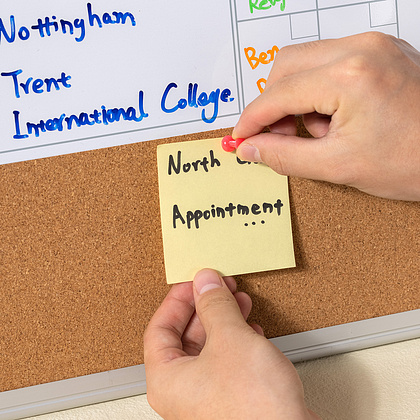 Nottingham
Trent
International College.
Ben
North
Appointment
...